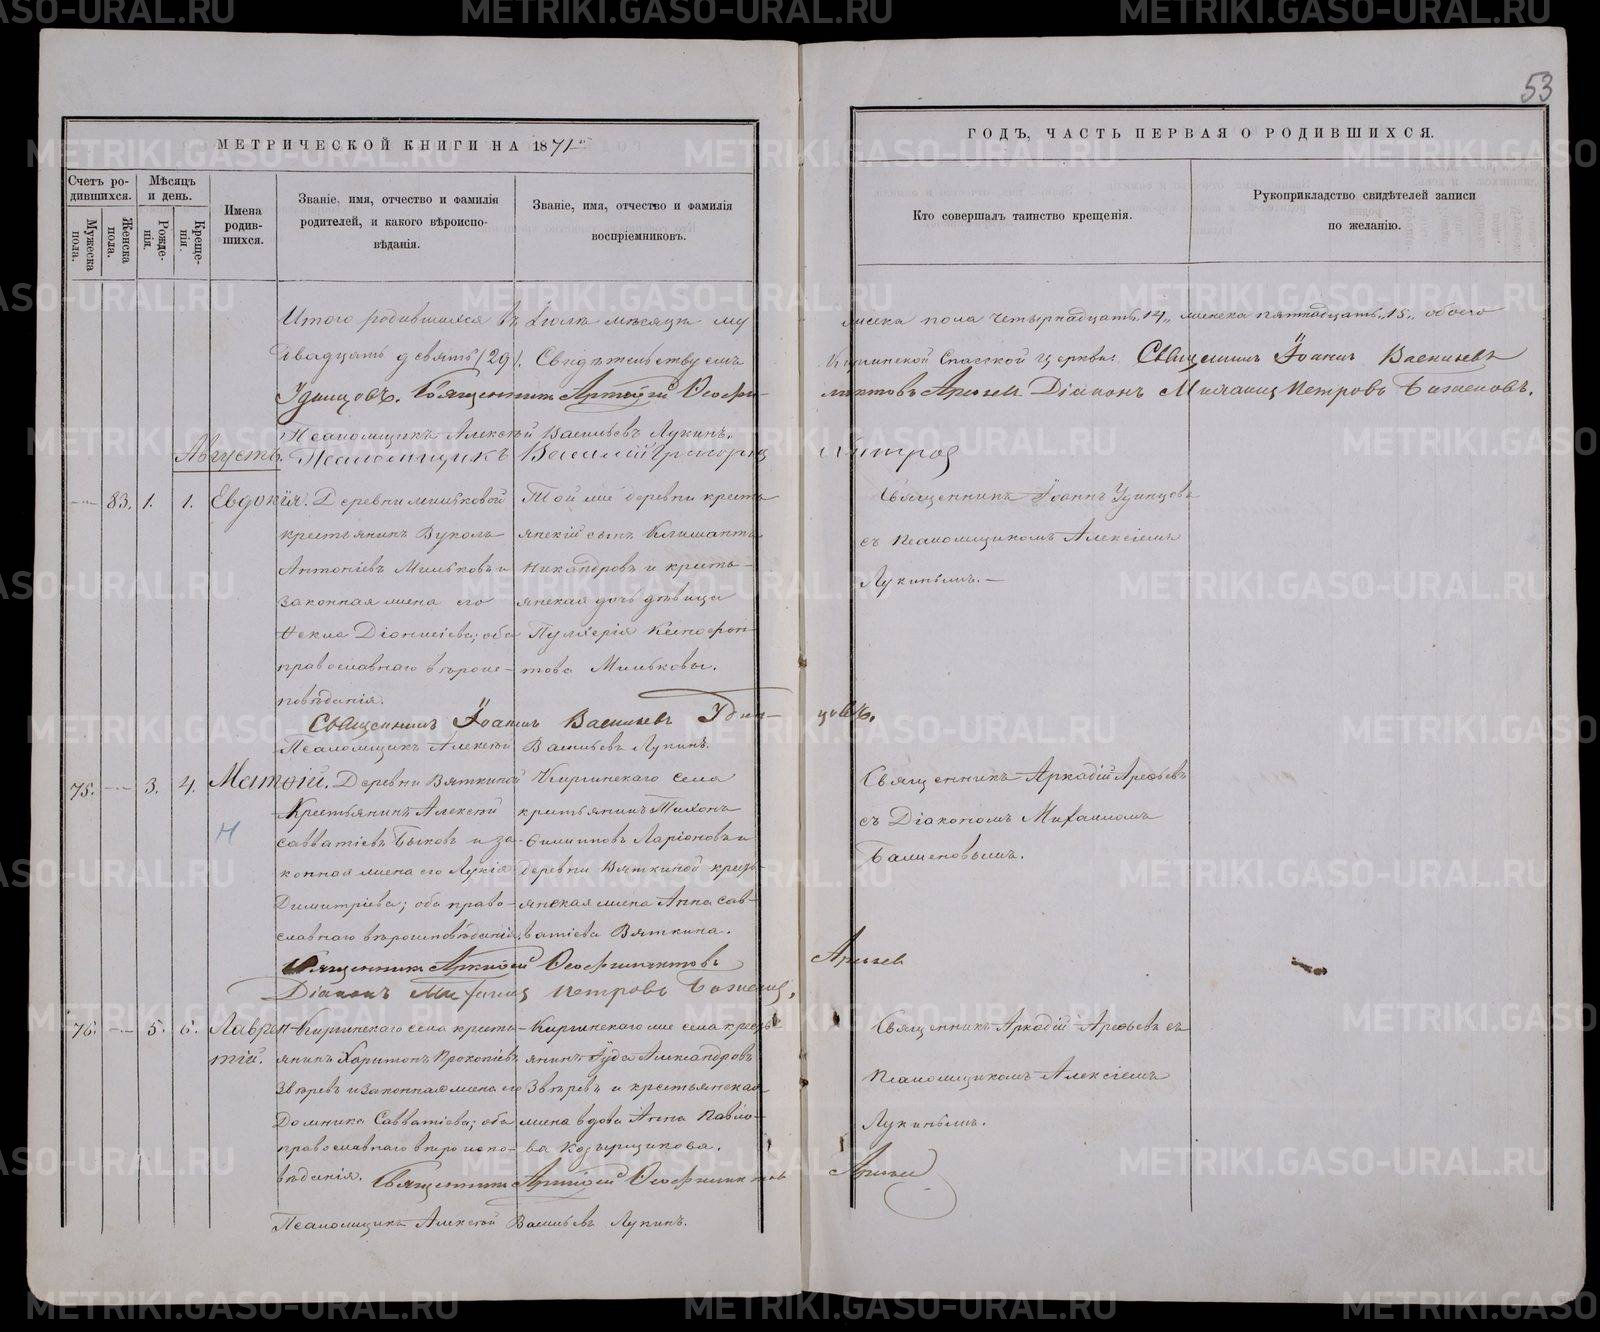 53
МЕТРИЧЕСКОЙ КНИГИ НА 1871й
ГОДЪ, ЧАСТЬ ПЕРВАЯ О РОДИВШИХСЯ.
Счетъ ро-
дившихся.
Мужеска пола.
Женска пола.
Мѣсяцъ
и день.
Рожде-
нія.
Креще-
нія.
Имена
родив-
шихся.
Званіе, имя, отчество и фамилія
родителей, и какого вѣроиспо-
вѣданія.
Званіе, имя, отчество и фамилія
воспріемниковъ.
Кто совершалъ таинство крещенія.
Рукоприкладство свидѣтелей записи
по желанію.
Итого родившихся въ Іюлѣ мѣсяцѣ му
жеска пола четырнадцать "14", женска пятнадцать "15", обоего
двадцать девять (29). Свидѣтельствуемъ
Киргинской Спасской церкви Священникъ Іоаннъ Васильевъ
Удинцовъ. Священникъ Аркадій Ѳеофи-
лактовъ Арефьев Діаконъ Михаилъ Петровъ Баженовъ.
Псаломщикъ Алексѣй Васильевъ Лукинъ.
Августъ. Псаломщикъ Василій Григорьев
83. 1. 1. Евдокія.
Деревни Мильковой
крестьянинъ Вуколъ
Антоніевъ Мильковъ и
законная жена его
Ѳекла Діонисіева; оба
православнаго вѣроис-
повѣданія.
Той же деревни кресть
янскій сынъ Климантъ
Никандровъ и кресть-
янская дочь дѣвица
Пулхерія Ксенофон-
това Мильковы.
Священникъ Іоаннъ Удинцовъ
съ Псаломщикомъ Алексіемъ
Лукинымъ.
Священникъ Іоаннъ Васильевъ Удин-
цовъ.
Псаломщикъ Алексѣй Васильевъ Лукинъ.
75. 3. 4. Матѳій.
Н
Деревни Вяткиной
Крестьянинъ Алексѣй
Савватіевъ Быковъ и за-
конная жена его Лукія
Димитріева; оба право-
славнаго вѣроисповѣданія.
Киргинскаго села
крестьянинъ Тихонъ
Филипповъ Ларіоновъ и
деревни Вяткиной кресть-
янская жена Анна Сав-
ватіева Вяткина.
Священникъ Аркадій Арефьевъ
съ Діакономъ Михаиломъ
Баженовымъ.
Священникъ Аркадій Ѳеофилактовъ
Арефьев
Діаконъ Михаилъ Петровъ Баженов,
76. 5. 6. Лаврен-
тій.
Киргинскаго села кресть-
янинъ Харитонъ Прокопіевъ
Звѣревъ и законная жена его
Домника Савватіева; оба
православнаго вѣроиспо-
вѣданія.
Киргинскаго же села кресть-
янинъ Іуда Александровъ
Звѣревъ и крестьянская
жена вдова Анна Павло-
ва Козырщикова.
Священникъ Аркадій Арефьевъ съ
Псаломщикомъ Алексіемъ
Лукинымъ.
Священникъ Аркадій Ѳеофилактовъ
Арефьев
Псаломщикъ Алексѣй Васильевъ Лукинъ.
METRIKI.GASO-URAL.RU